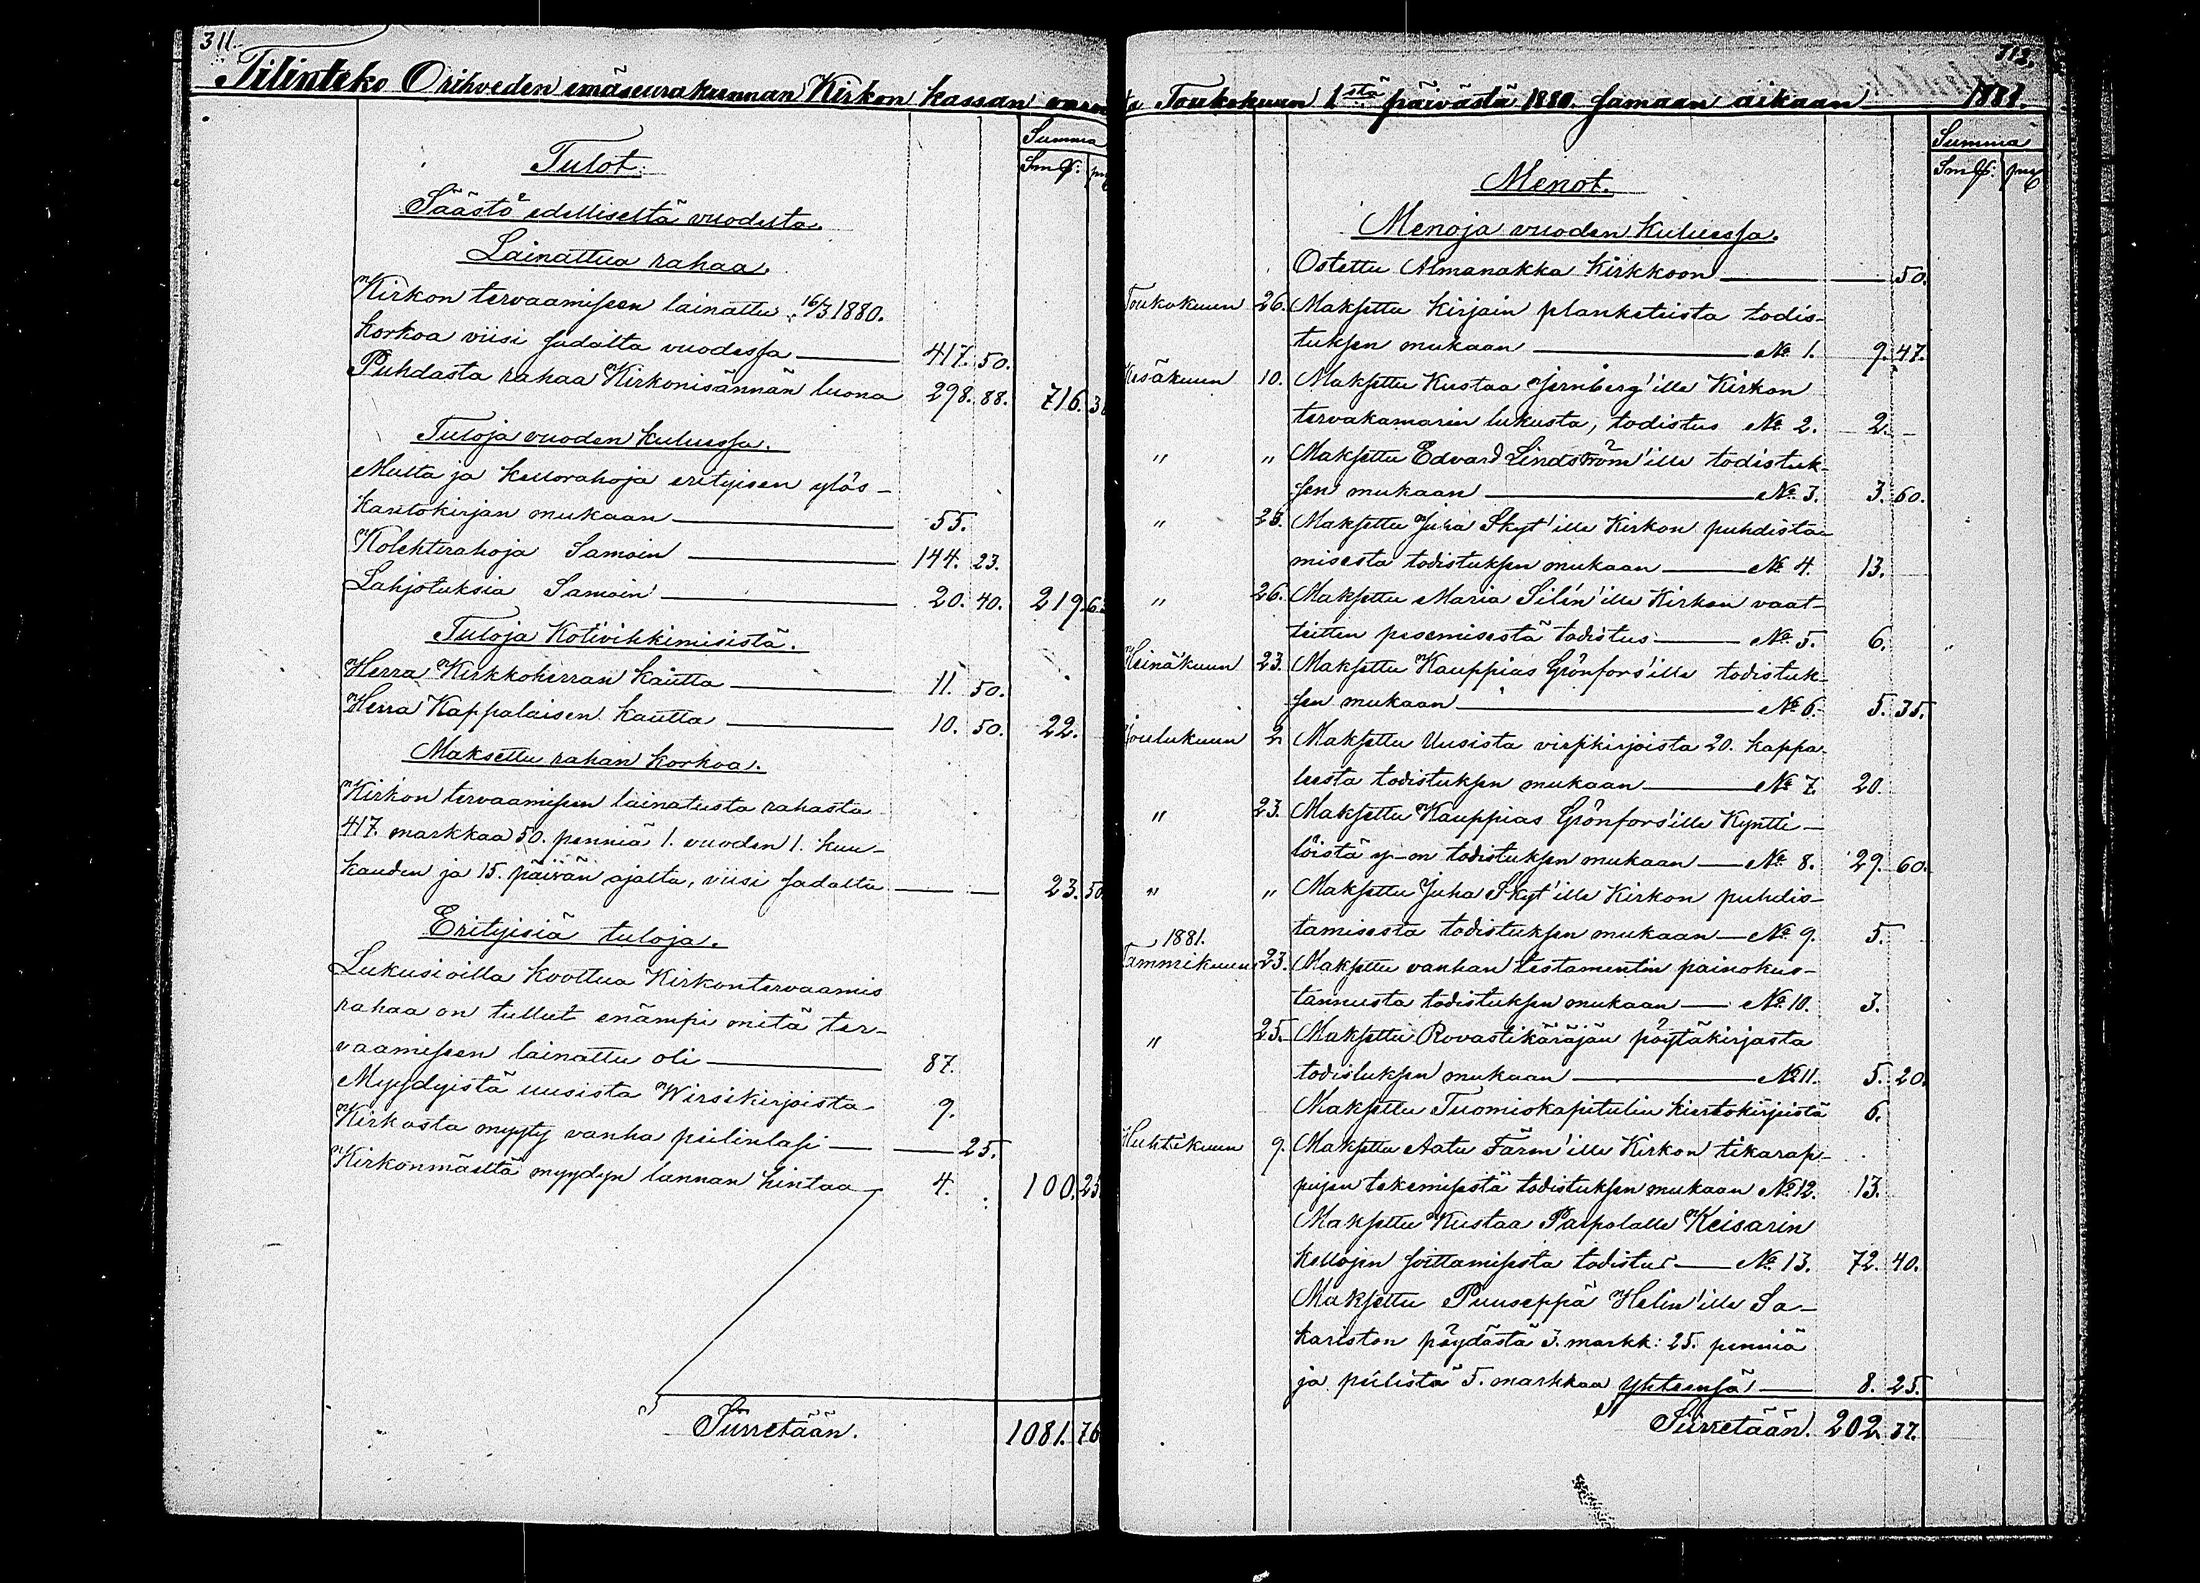 311.
Tilinteko Orihveden emäseurakunnan Kirkon kassan
Summa
Smk: 
Tulot.
Säästö edelliseltä vuodelta.
Lainattua rahaa.
Kirkon tervaamiseen lainattu 16/3 1880.
korkoa viisi sadalta vuodessa — 417. 50.
Puhdasta rahaa Kirkonisännän luona 298. 88. 716. 3
Tuloja vuoden kuluessa.
Multa ja kellorahoja erityisen ylös-
kantokirjan mukaan — 55.
Kolehtirahoja Samoin — 144. 23.
Lahjotuksia Samoin — 20. 40. 219. 6
Tuloja Kotivihkimisistä.
Herra Kirkkoherran kautta — 11. 50.
Herra Kappalaisen kautta — 10. 50. 22.
Maksettu rahan korkoa.
Kirkon tervaamiseen lainatusta rahasta
417. markkaa 50. penniä 1. vuoden 1. kuu-
kauden ja 15. päivän ajalta, viisi sadalta — 23. 50
Erityisiä tuloja.
Lukusioilla koottua Kirkontervaamis
rahaa on tullut enämpi mitä ter-
vaamiseen lainattu oli — 87.
Myydyistä uusista Wirsikirjoista 9.
Kirkosta myyty vanha peilinlasi — 25.
Kirkonmäeltä myydyn lannan hintaa 4. 100. 25
Siirretään. 1081. 76
Toukokuun 1stä päivästä 1880. samaan aikaan 1881.
Summa
Smk: png
Menot.
Menoja vuoden kuluessa.
Ostettu Almanakka Kirkkoon — 50.
Toukokuun 26. Maksettu kirjain planketeista todis-
tuksen mukaan — No 1. 9. 47.
Kesäkuun 10. Maksettu Kustaa Jernberg'ille Kirkon
tervakamarin lukusta, todistus No 2. 2. —
" " Maksettu Edvard Lindström'ille todistuk-
sen mukaan — No 3. 3. 60.
" 25. Maksettu Juha Skyt'ille Kirkon puhdista-
misesta todistuksen mukaan — No 4. 13.
" 26. Maksettu Maria Silén'ille Kirkon vaat-
teitten pesemisestä todistus — No 5. 6.
Heinäkuun 23. Maksettu Kauppias Grönfors'ille todistuk-
sen mukaan — No 6. 5. 35.
Joulukuun 2 Maksettu Uusista virsikirjoista 20. kappa-
leesta todistuksen mukaan — No 7. 20.
" 23. Maksettu Kauppias Grönfors'ille Kyntti-
löistä y-m todistuksen mukaan — No 8. 29. 60.
" " Maksettu Juha Skyt'ille Kirkon puhdis-
tamisesta todistuksen mukaan — No 9. 5.
1881.
Tammikuun 23. Maksettu vanhan testamentin painokus-
tannusta todistuksen mukaan — No 10. 3.
" 25. Maksettu Rovastikäräjän pöytäkirjasta
todistuksen mukaan — No 11. 5. 20.
Maksettu Tuomiokapitulin kiertokirjeistä 6.
Huhtikuun 9. Maksettu Aatu Färm'ille Kirkon tikarap-
pujen tekemisestä todistuksen mukaan No 12. 13.
Maksettu Kustaa Paipolalle Keisarin
kellojen soittamisesta todistus — No 13. 72. 40.
Maksettu Puuseppä Helin'ille Sa-
kariston pöydästä 3. markk: 25. penniä
ja peilistä 5. markkaa yhteensä — 8. 25.
Siirretään. 202. 37.